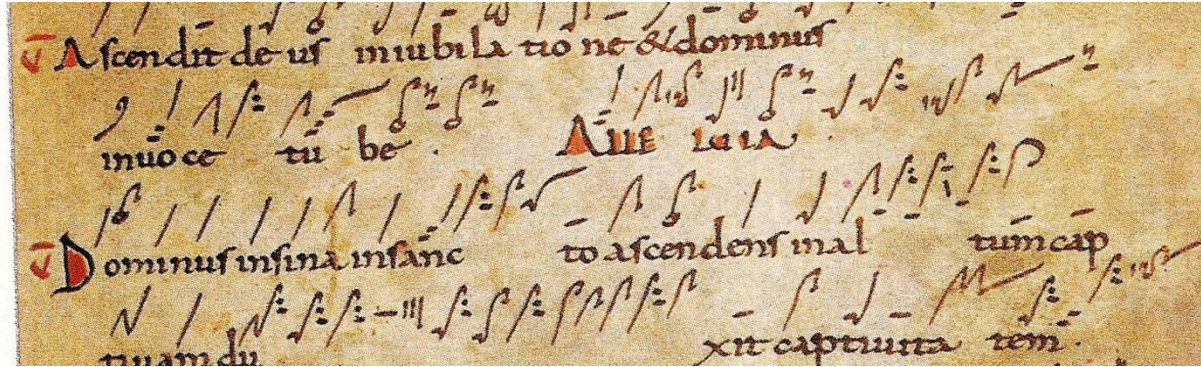 ℣ Ascendit deus in iubilatione & dominus
in uoce tubę. Alleluia
℣ Dominus in sina in sancto ascendens in altum cap
tiuam duxit captiuitatem.